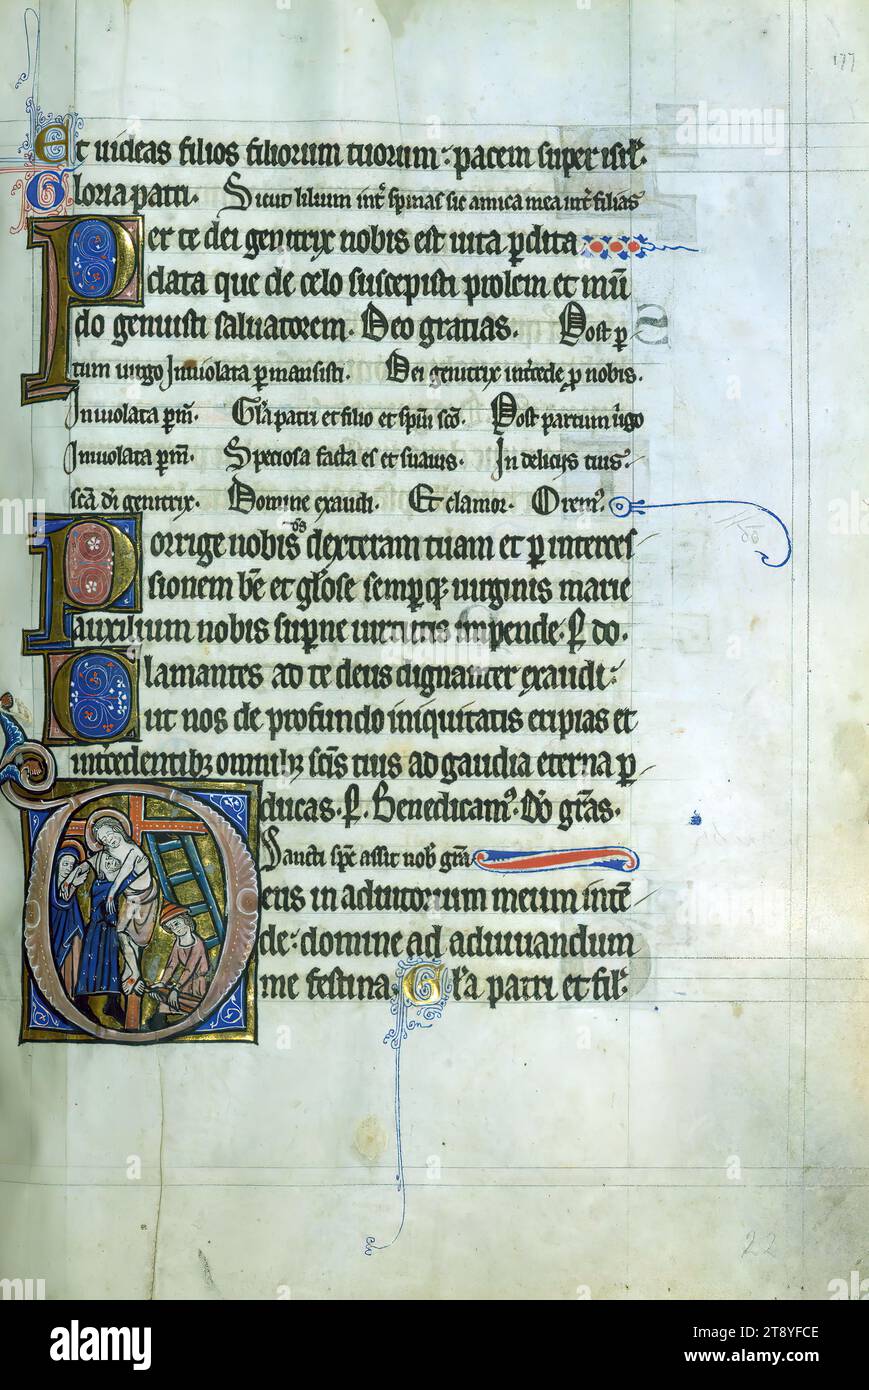 177
Et uideas filios filiorum tuorum: pacem super isrl'.
Gloria patri. Sicut lilium int' spinas sic amica mea int' filias
Per te dei genitrix nobis est uita pdita
data que de celo suscepisti prolem et mū
do genuisti saluatorem. Deo gratias. Post p
tum uirgo Inuiolata pmansisti. Dei genitrix intcede p nobis.
Inuiolata pm. Gla patri et filio et spui sco. Post partum ugo
Inuiolata pm. Speciosa facta es et suauis. In delicijs tuis
sca di genitrix. Domine exaudi. Et clamor. Orem'.
Porrige nobis ds dexteram tuam et p interces
sionem be et gl'ose sempq; uirginis marie
auxilium nobis supne uirtutis impende. P do.
Clamantes ad te deus dignanter exaudi:
ut nos de profundo iniquitatis eripias et
intcedentib; omnib; scis tuis ad gaudia eterna p
ducas. P. Benedicam'. Do gras.
Sancti spc assit nob gra
Deus in adiutorium meum inten
de: domine ad adiuuandum
me festina. Gl'a patri et fil'.
22
alamy
Image ID: 2T8YFCE
www.alamy.com